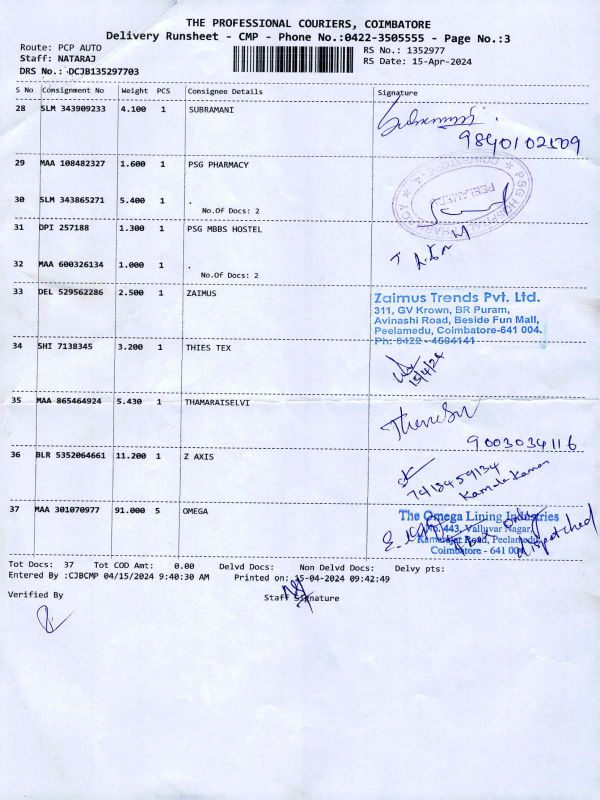 THE PROFESSIONAL COURIERS, COIMBATORE
Delivery Runsheet - CMP - Phone No.:0422-3505555 - Page No.:3
Route: PCP AUTO
Staff: NATARAJ
DRS No.: DCJB135297703
RS No.: 1352977
RS Date: 15-Apr-2024
S No Consignment No Weight PCS Consignee Details Signature
28 SLM 343909233 4.100 1 SUBRAMANI
9840102509
29 MAA 108482327 1.600 1 PSG PHARMACY
30 SLM 343865271 5.400 1 .
No.Of Docs: 2
PEELAMEDU
31 DPI 257188 1.300 1 PSG MBBS HOSTEL
32 MAA 600326134 1.000 1 .
No.Of Docs: 2
33 DEL 529562286 2.500 1 ZAIMUS
Zaimus Trends Pvt. Ltd.
311, GV Krown, BR Puram,
Avinashi Road, Beside Fun Mall,
Peelamedu, Coimbatore-641 004.
Ph: 0422 - 4504141
34 SHI 7138345 3.200 1 THIES TEX
15/4/24
35 MAA 865464924 5.430 1 THAMARAISELVI
9003034116
36 BLR 5352064661 11.200 1 Z AXIS
7418459134
37 MAA 301070977 91.000 5 OMEGA
The Omega Lining Industries
No. 443, Valluvar Nagar,
Road, Peelamedu
Coimbatore - 641 004
Box only dispatched
Tot Docs: 37 Tot COD Amt: 0.00 Delvd Docs: Non Delvd Docs: Delvy pts:
Entered By :CJBCMP 04/15/2024 9:40:30 AM Printed on: 15-04-2024 09:42:49
Verified By Staff Signature